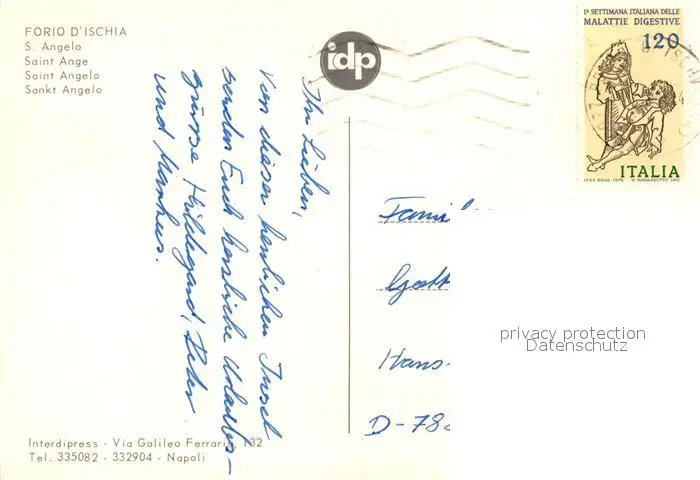 FORIO D'ISCHIA
S. Angelo
Saint Ange
Saint Angelo
Sankt Angelo
idp
1ª SETTIMANA ITALIANA DELLE
MALATTIE DIGESTIVE
120
ITALIA
Ihr Lieben,
Von dieser herrlichen Insel
senden Euch herzliche Urlaubs-
grüsse Hildegard, Peter
und Markus.
Famil
Hans-
D-78
privacy protection
Datenschutz
Interdipress - Via Galileo Ferraris, 132
Tel. 335082 - 332904 - Napoli